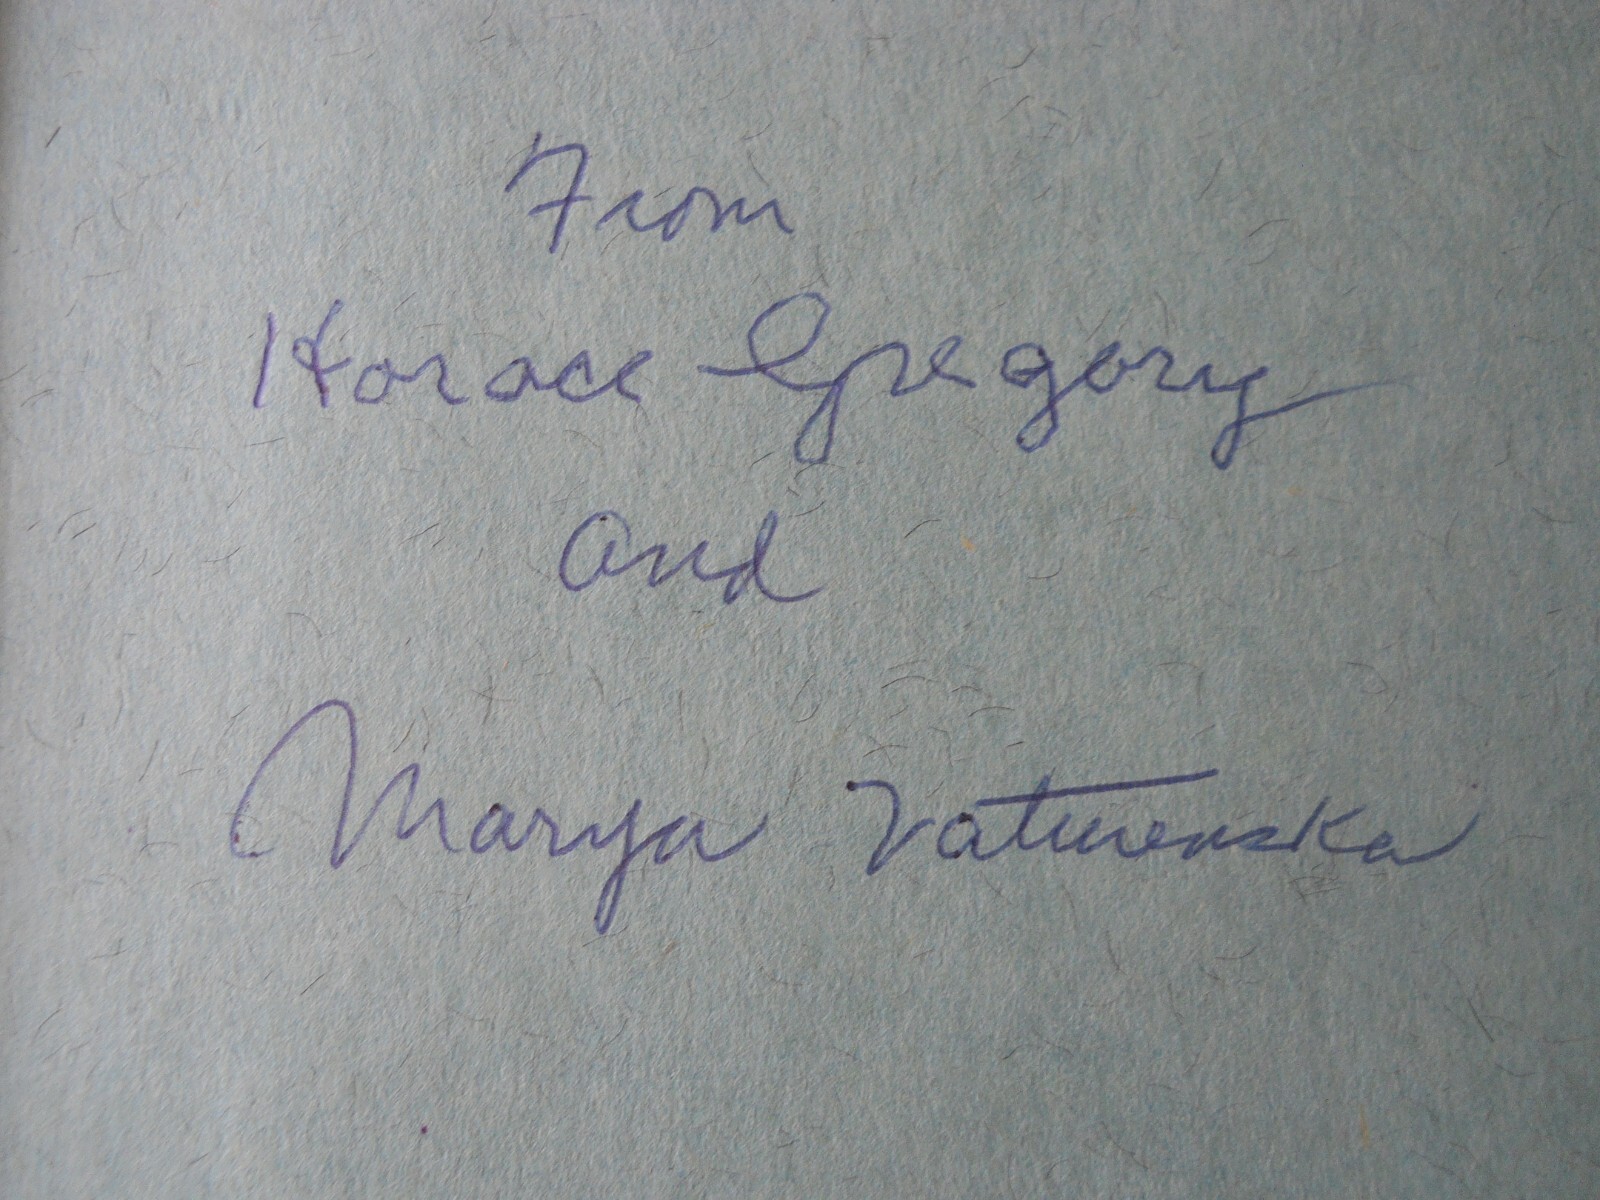 From
Horace Gregory
and
Marya Zaturenska